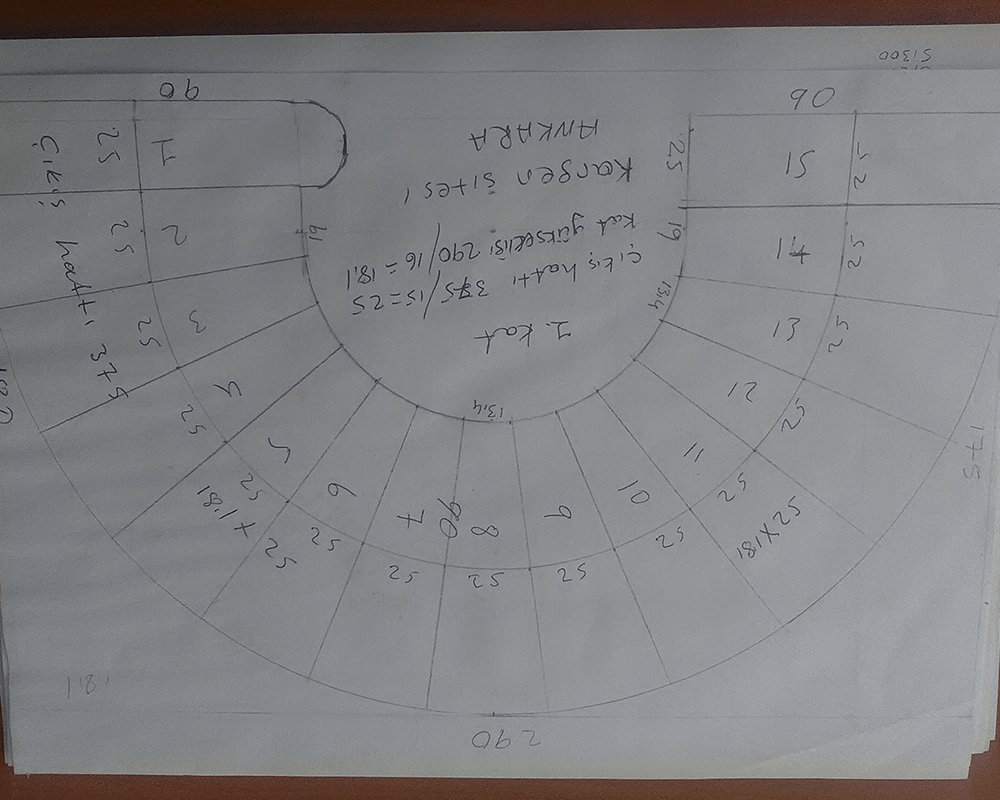 290
18,1
25 x 18,1
25 x 18,1
175
25
25
25
25
25
25
25
25
25
25
25
25
25
25
25
8
90
7
9
6
10
5
11
4
12
3
13
2
14
1
15
13,4
13,4
19
19
25
1. kat
Çıkış hattı 375/15=25
Kat yüksekliği 290/16=18,1
Kargen Sitesi
ANKARA
Çıkış hattı 375
90
90
51300